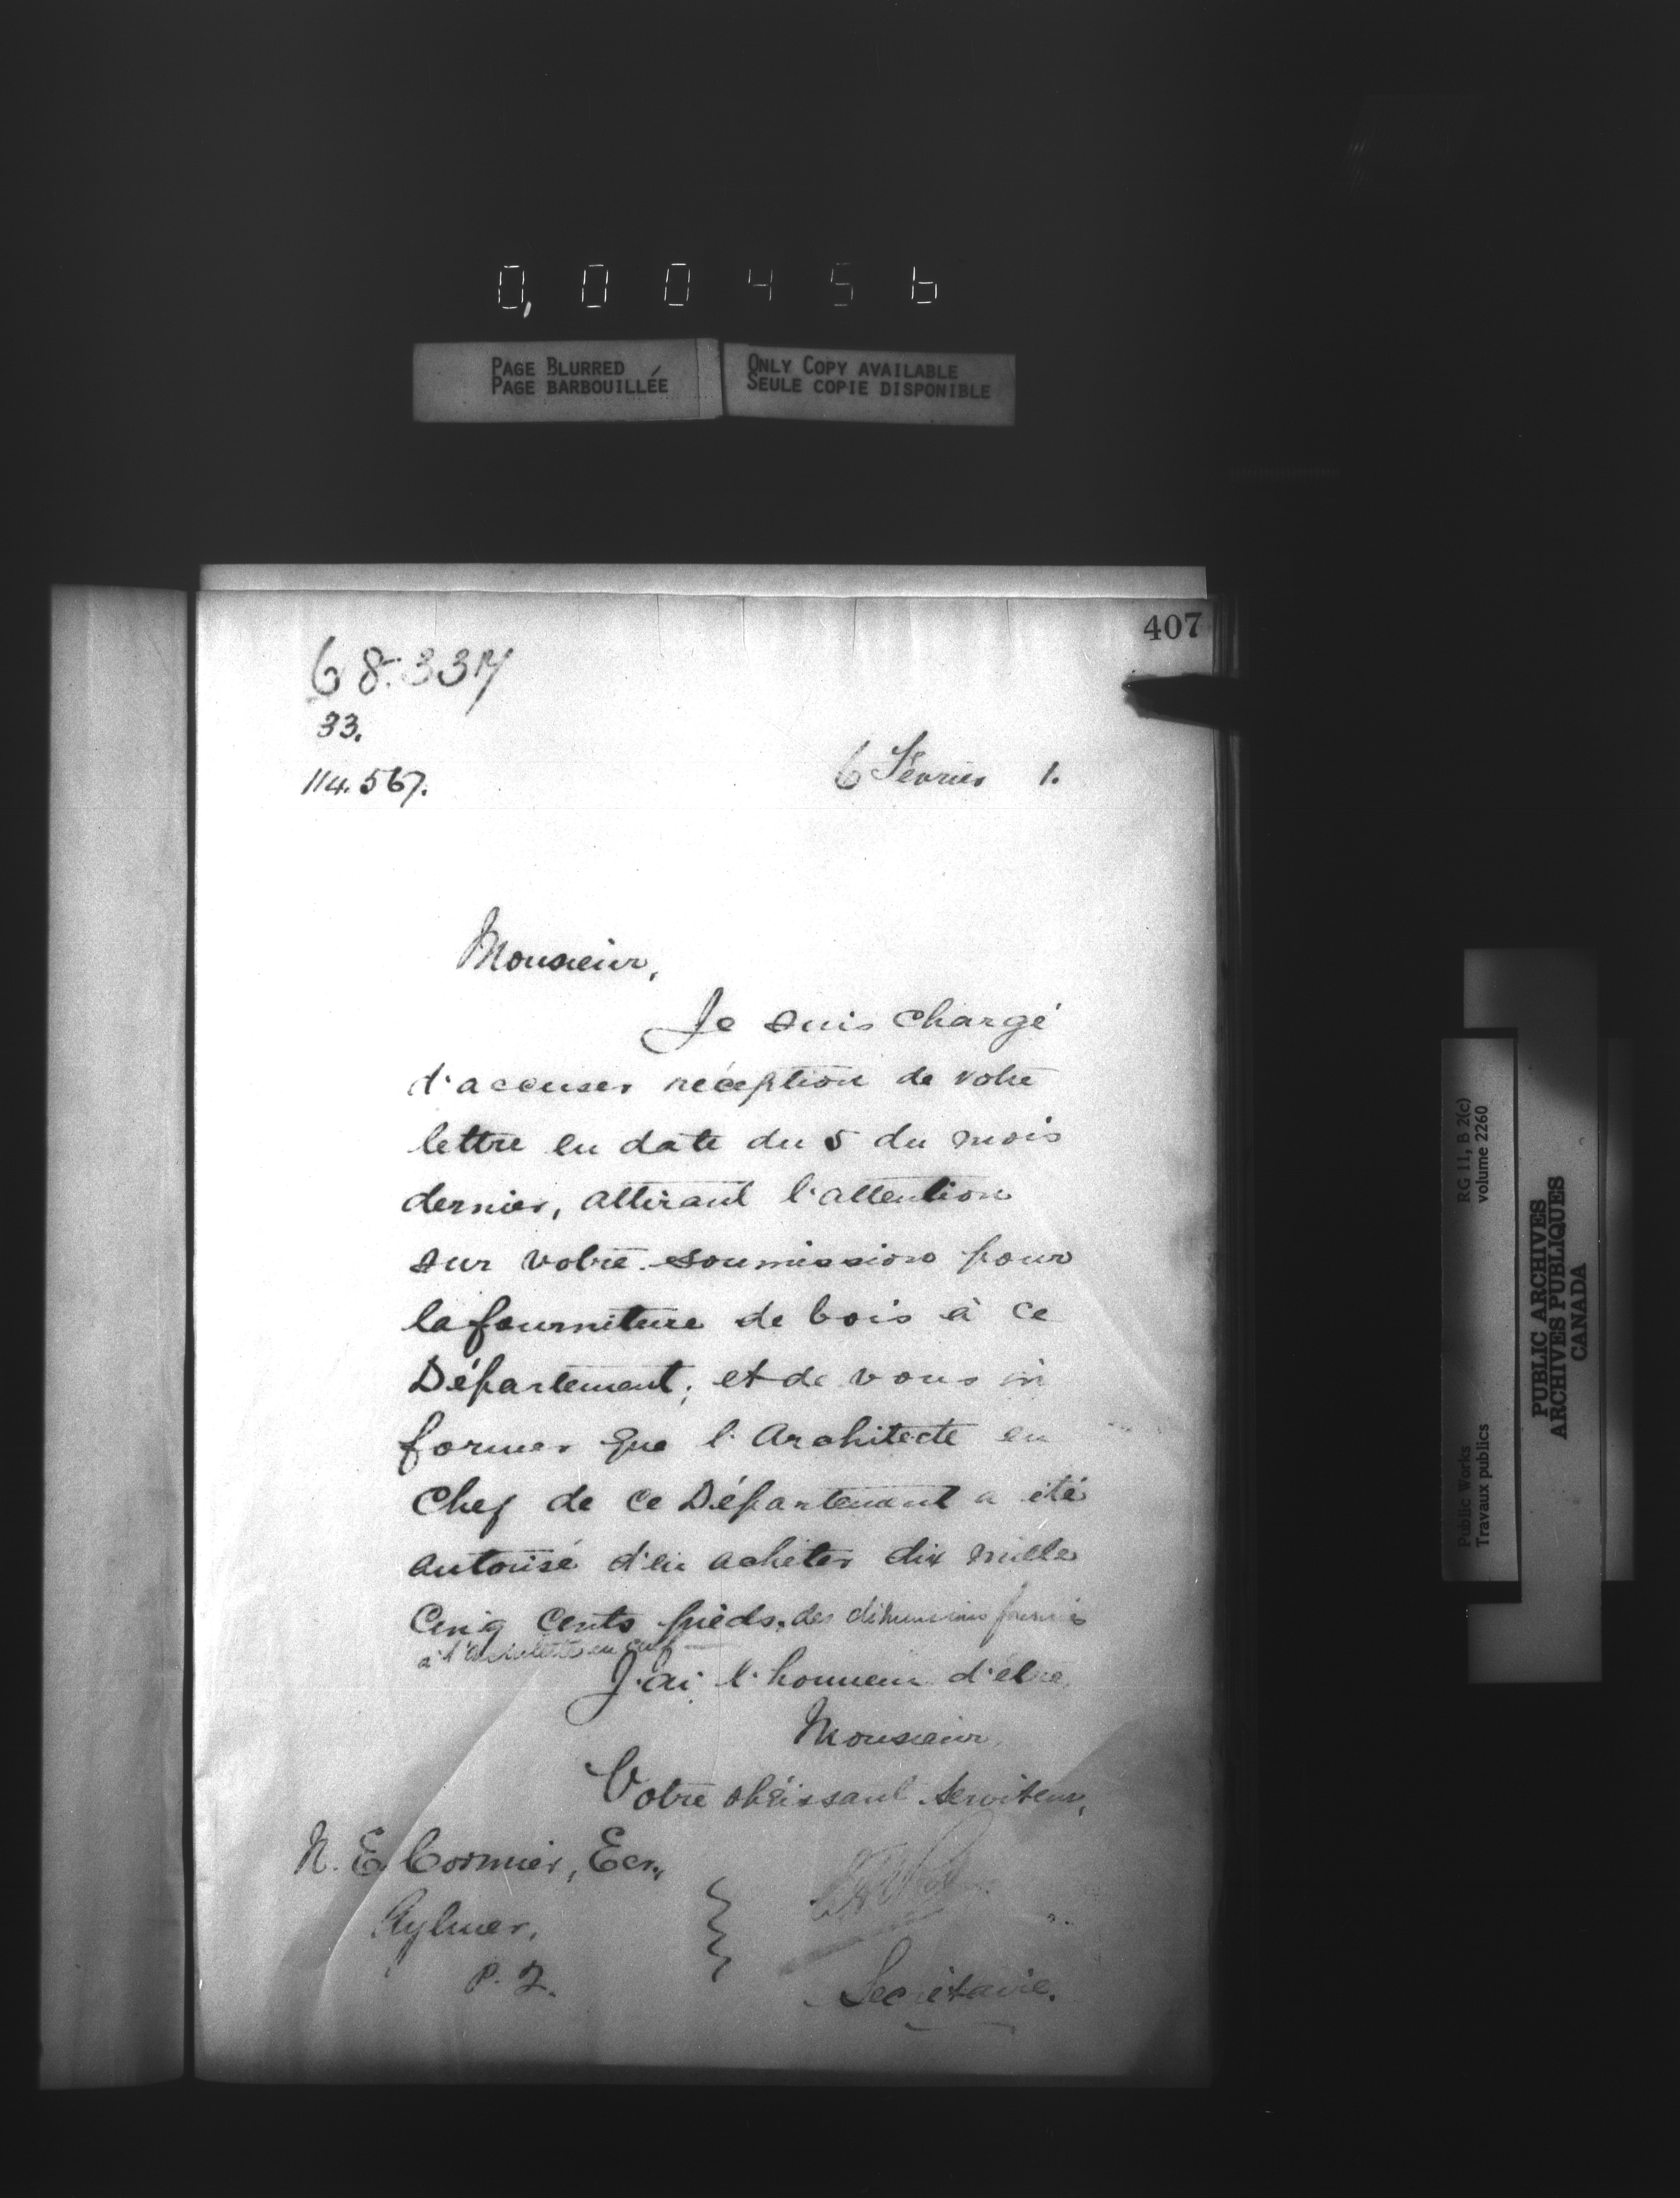 0,00456
PAGE BLURRED
PAGE BARBOUILLÉE
ONLY COPY AVAILABLE
SEULE COPIE DISPONIBLE
407
68.337
33.
114.567.
6 Février 1.
Monsieur,
Je suis chargé
d'accuser réception de votre
lettre en date du 5 du mois
dernier, attirant l'attention
sur votre soumission pour
la fourniture de bois à ce
Département; et de vous in
former que l'Architecte en
Chef de ce Département a été
autorisé d'en acheter dix mille
Cinq Cents pieds, des dimensions fournies
à l'architecte en chef
J'ai l'honneur d'être
Monsieur,
Votre obéissant serviteur,
N. E. Cormier, Ecr.,
Aylmer,
P. Q.
Secrétaire.
RG 11, B 2(c)
volume 2260
Public Works
Travaux publics
PUBLIC ARCHIVES
ARCHIVES PUBLIQUES
CANADA